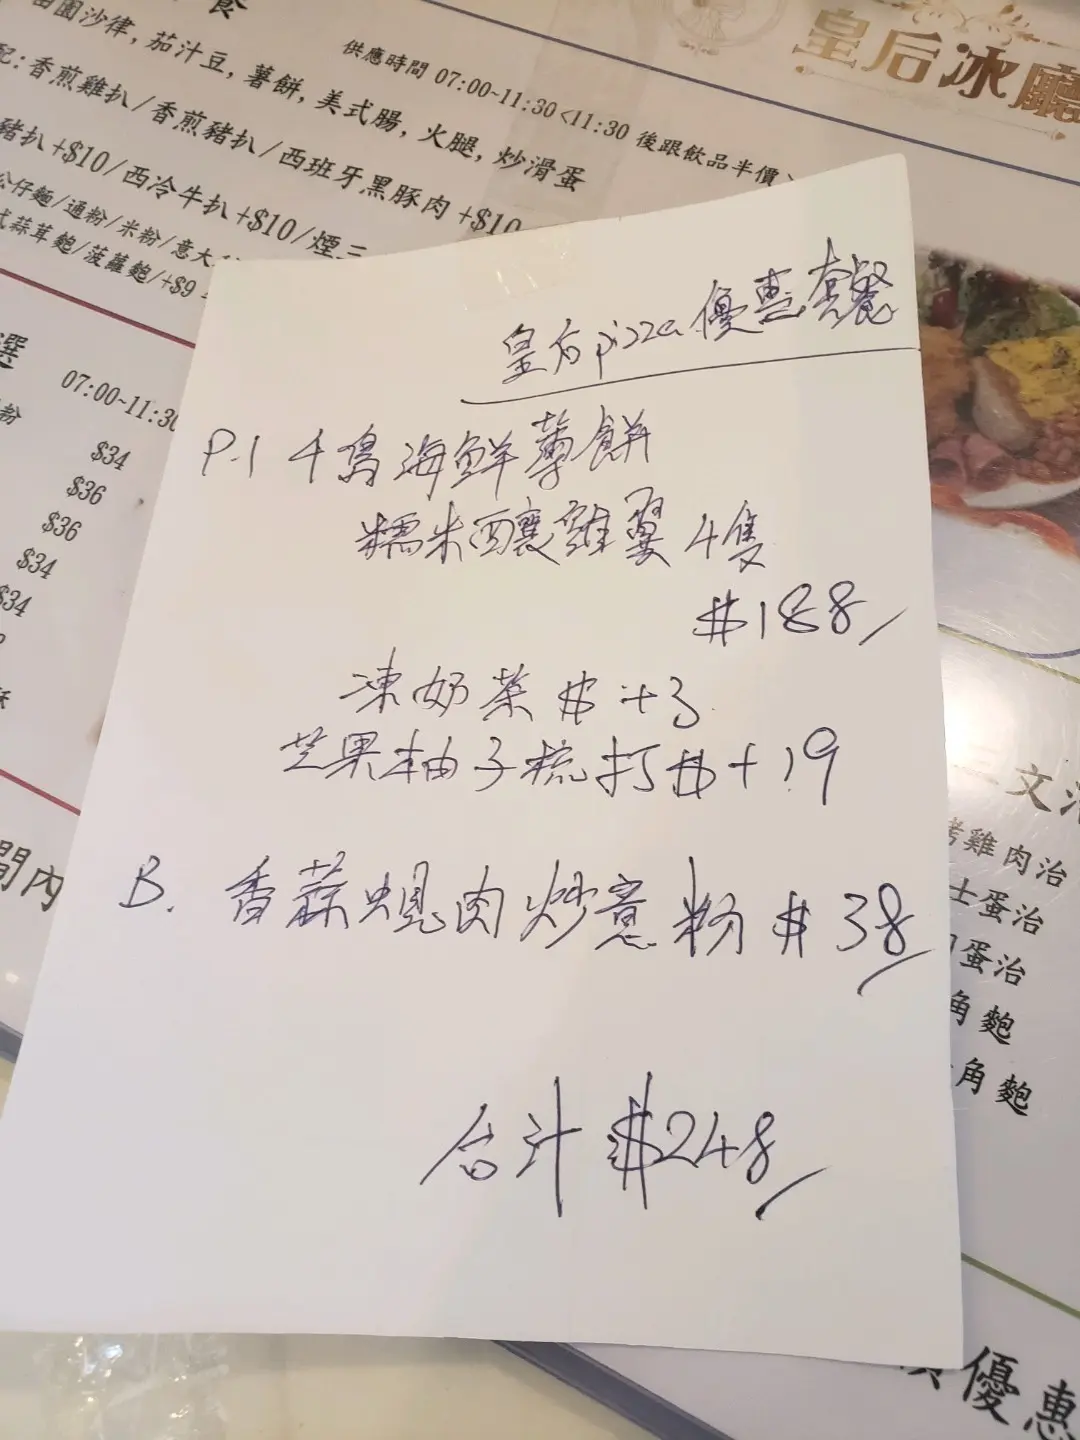 食
田園沙律, 茄汁豆, 薯餅, 美式腸, 火腿, 炒滑蛋
供應時間 07:00~11:30 <11:30 後跟飲品半價
配:香煎雞扒/香煎豬扒/西班牙黑豚肉 +$10
豬扒+$10/西冷牛扒+$10/煙三
公仔麵/通粉/米粉/意大
式蒜茸麵/菠蘿麵/+$9
皇后冰廳
選
07:00~11:30
粉
$34
$36
$36
$34
$34
間內
皇后pizza優惠套餐
P.1 千島海鮮薄餅
糯米釀雞翼 4隻
$188/
凍奶茶 $+3
芒果柚子梳打$+19
B. 香蒜蜆肉炒意粉 $38/
合計 $248/
三文治
烤雞肉治
士蛋治
蛋治
角麭
角麭
優惠